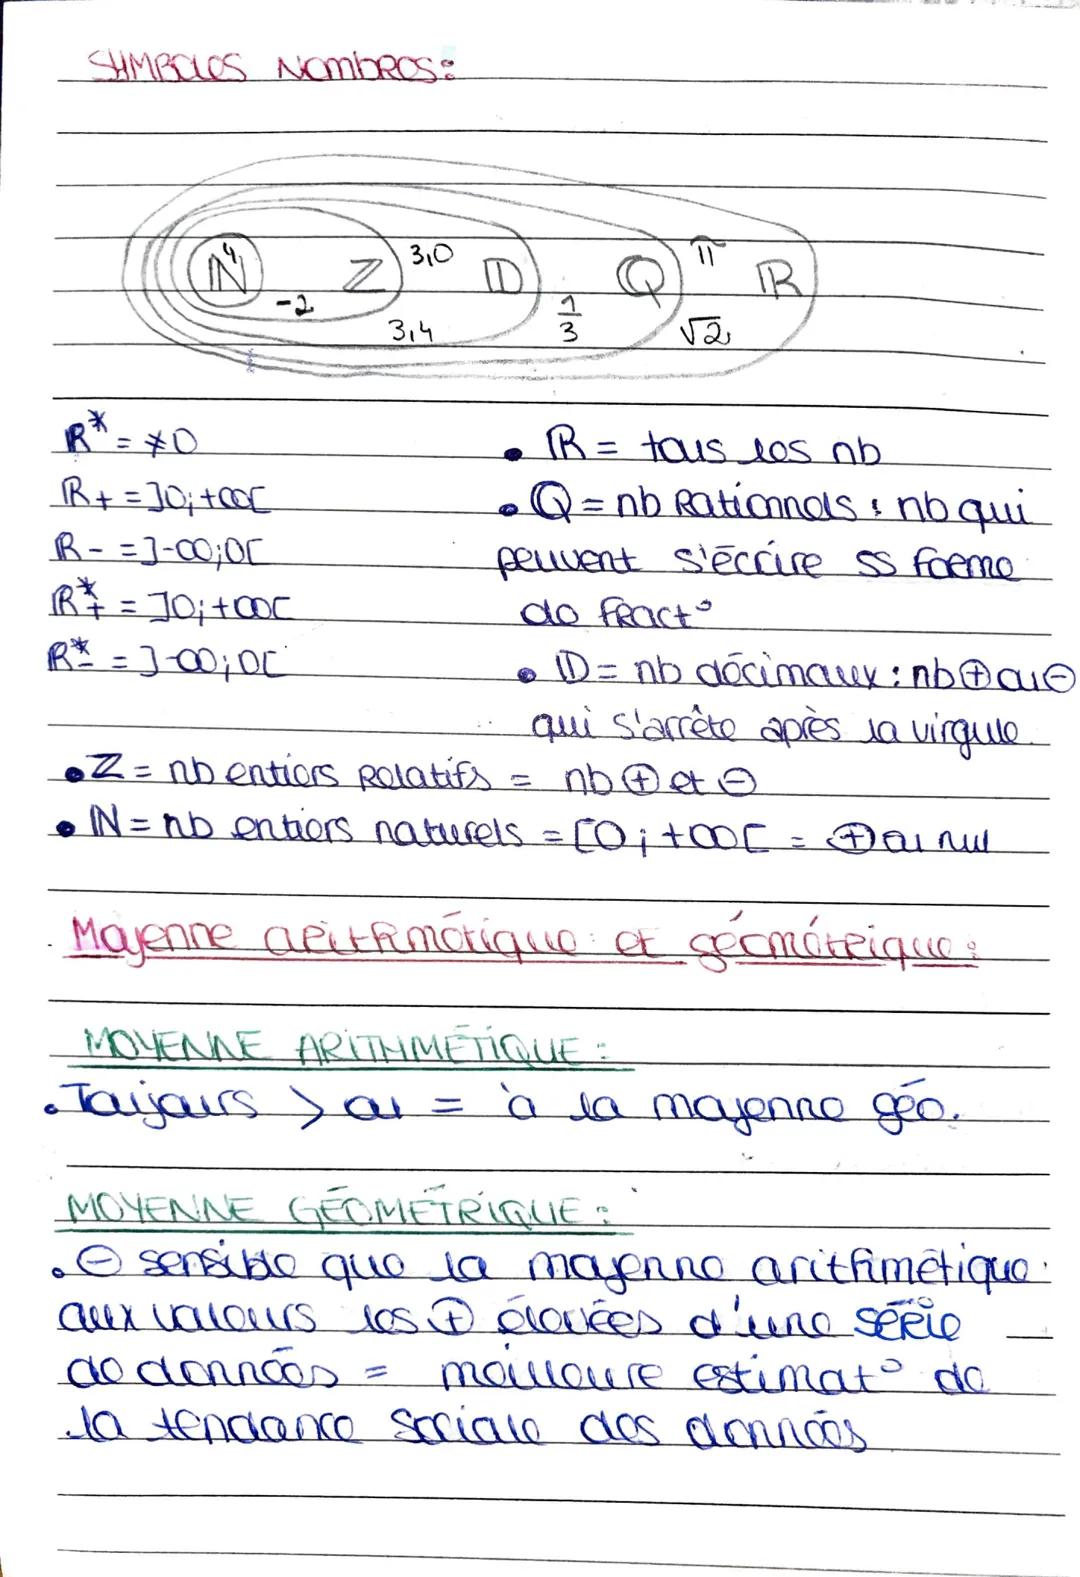 SYMBOLES NOMBRES:
N 4 Z -2 3,0 3,4 D 1/3 Q π √2 R
R* = ≠0
R+ = ]0;+∞[
R- = ]-∞;0[
R*+ = ]0;+∞[
R*- = ]-∞;0[
• R = tous les nb
• Q = nb Rationnels : nb qui
peuvent s'écrire ss forme
de fract°
• D = nb décimaux : nb ⊕ ou ⊖
qui s'arrête après la virgule.
• Z = nb entiers Relatifs = nb ⊕ et ⊖
• N = nb entiers naturels = [0;+∞[ = ⊕ ou nul
Moyenne arithmétique et géométrique :
MOYENNE ARITHMÉTIQUE :
• Toujours > ou = à la moyenne géo.
MOYENNE GÉOMÉTRIQUE :
• ⊖ sensible que la moyenne arithmétique
aux valeurs les ⊕ élevées d'une série
de données = meilleure estimat° de
la tendance sociale des données